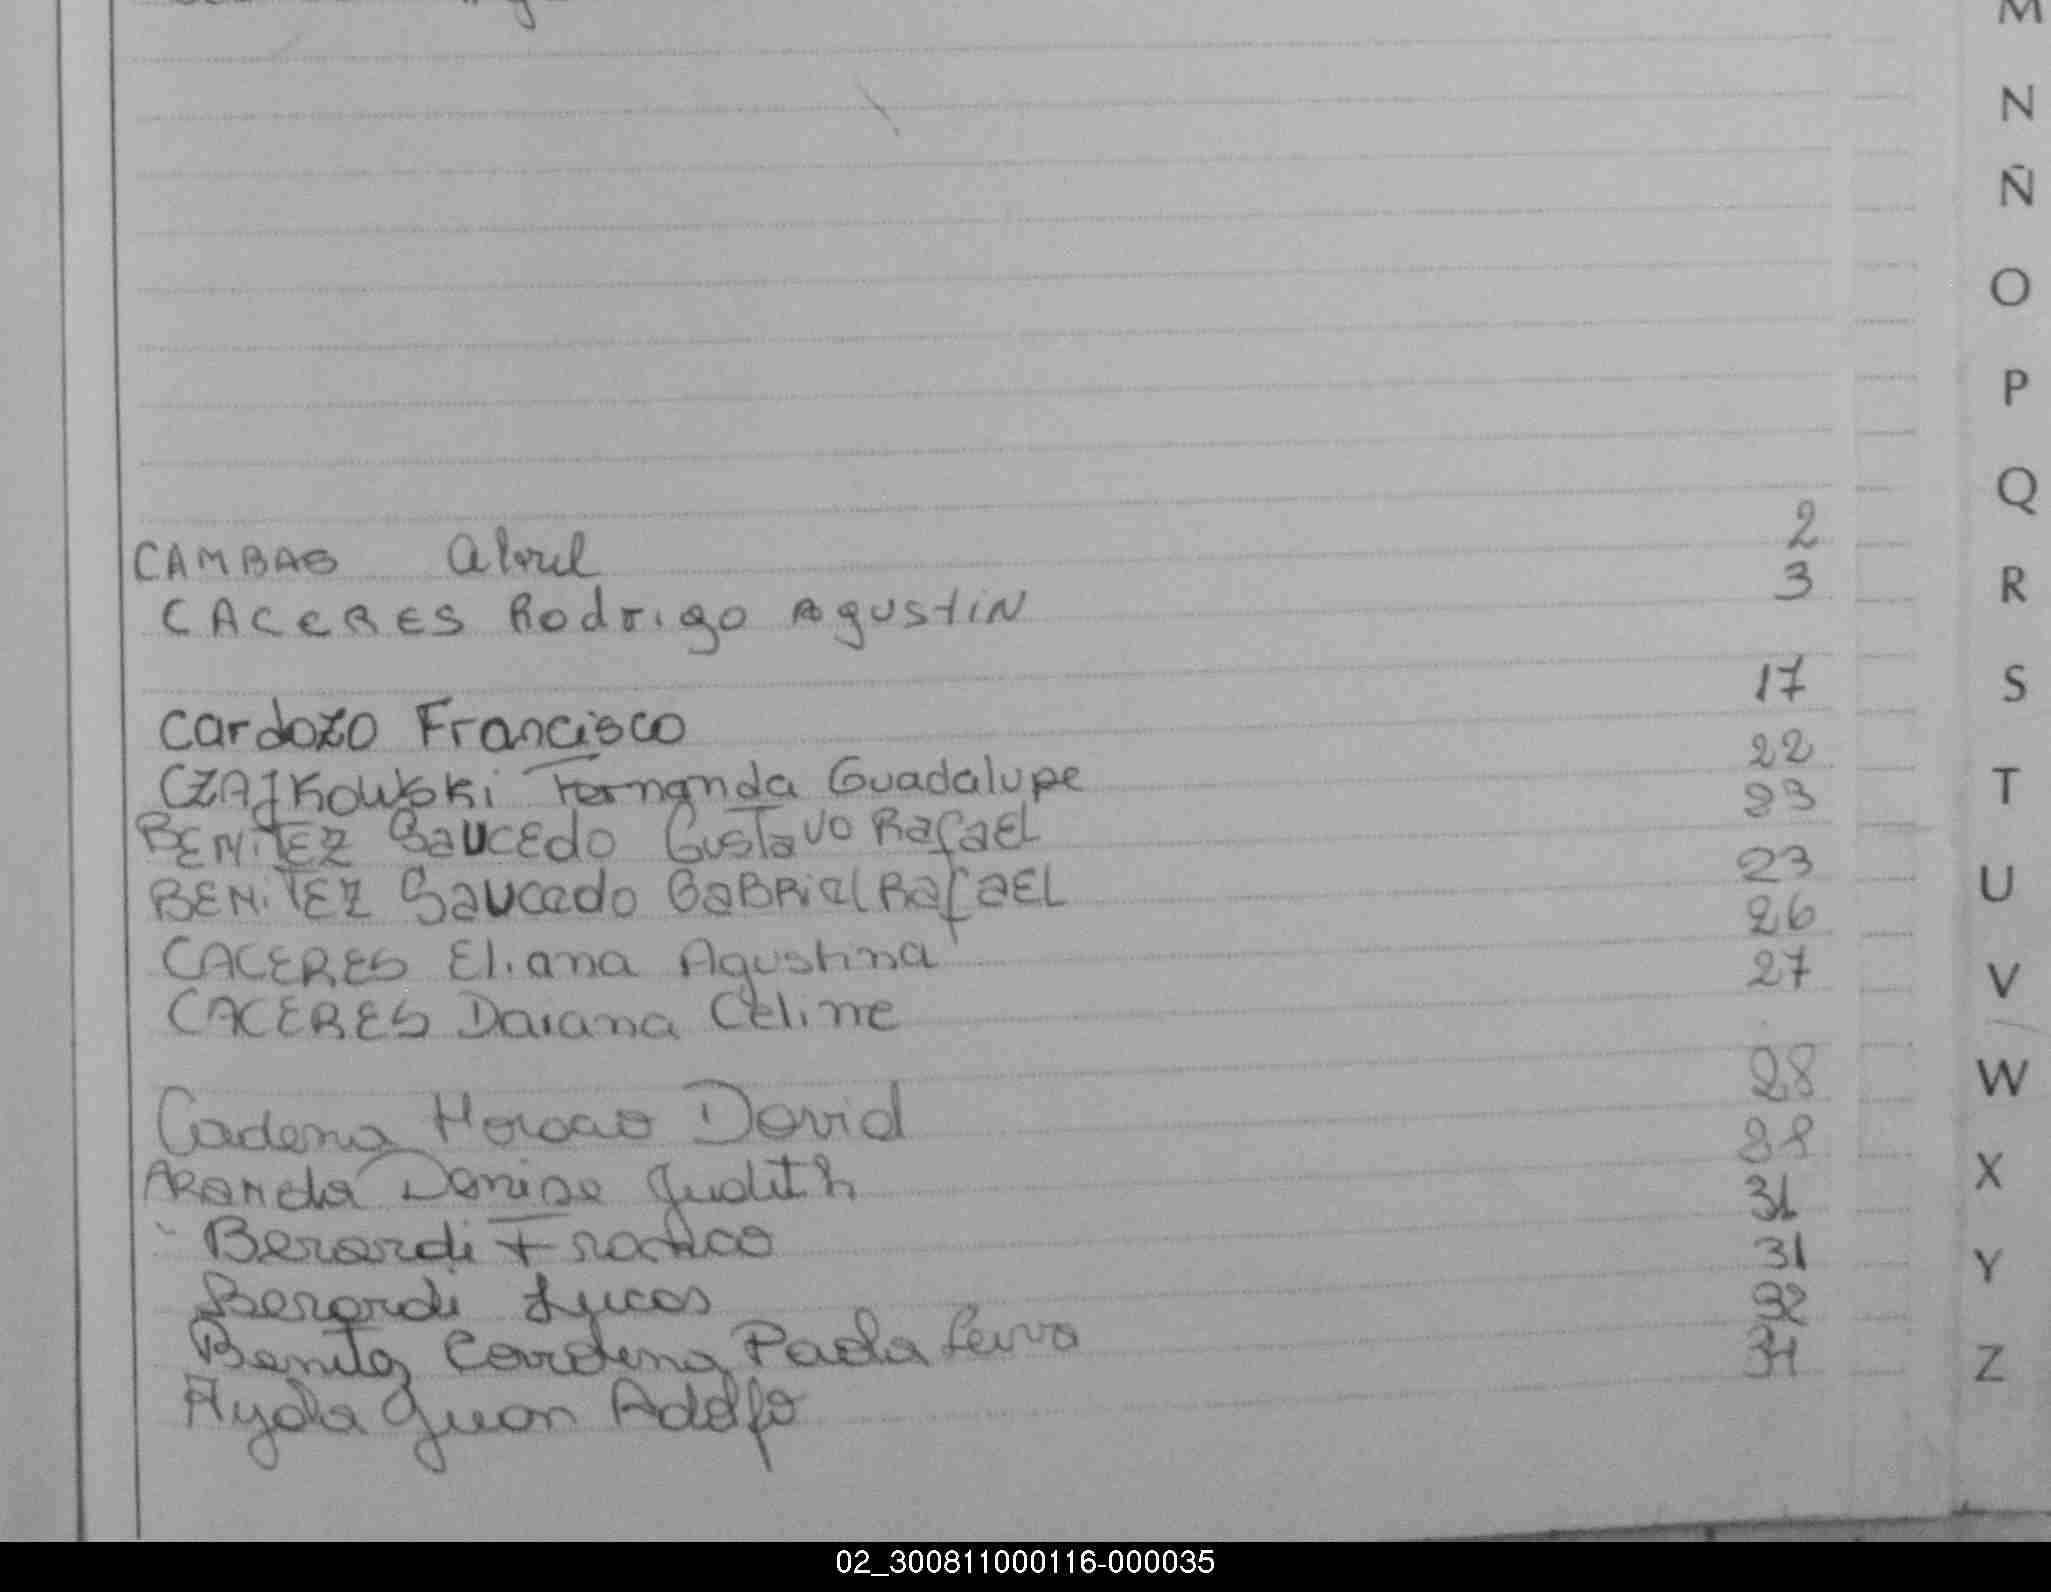 CAMBAS Abril 2
CACERES Rodrigo Agustin 3
Cardozo Francisco 17
CZAJKOWSKi Fernanda Guadalupe 22
BENiTEZ Saucedo Gustavo Rafael 23
BENiTEZ Saucedo GaBRiel Rafael 23
CACERES Eliana Agustina 26
CACERES Daiana Celine 27
Cadena Horacio David 28
ARanda Denise Judith 28
Berardi Franco 31
Berardi Lucas 31
Benitez Cardena Paola 32
Ayala Juan Adolfo 34
M
N
Ñ
O
P
Q
R
S
T
U
V
W
X
Y
Z
02_300811000116-000035